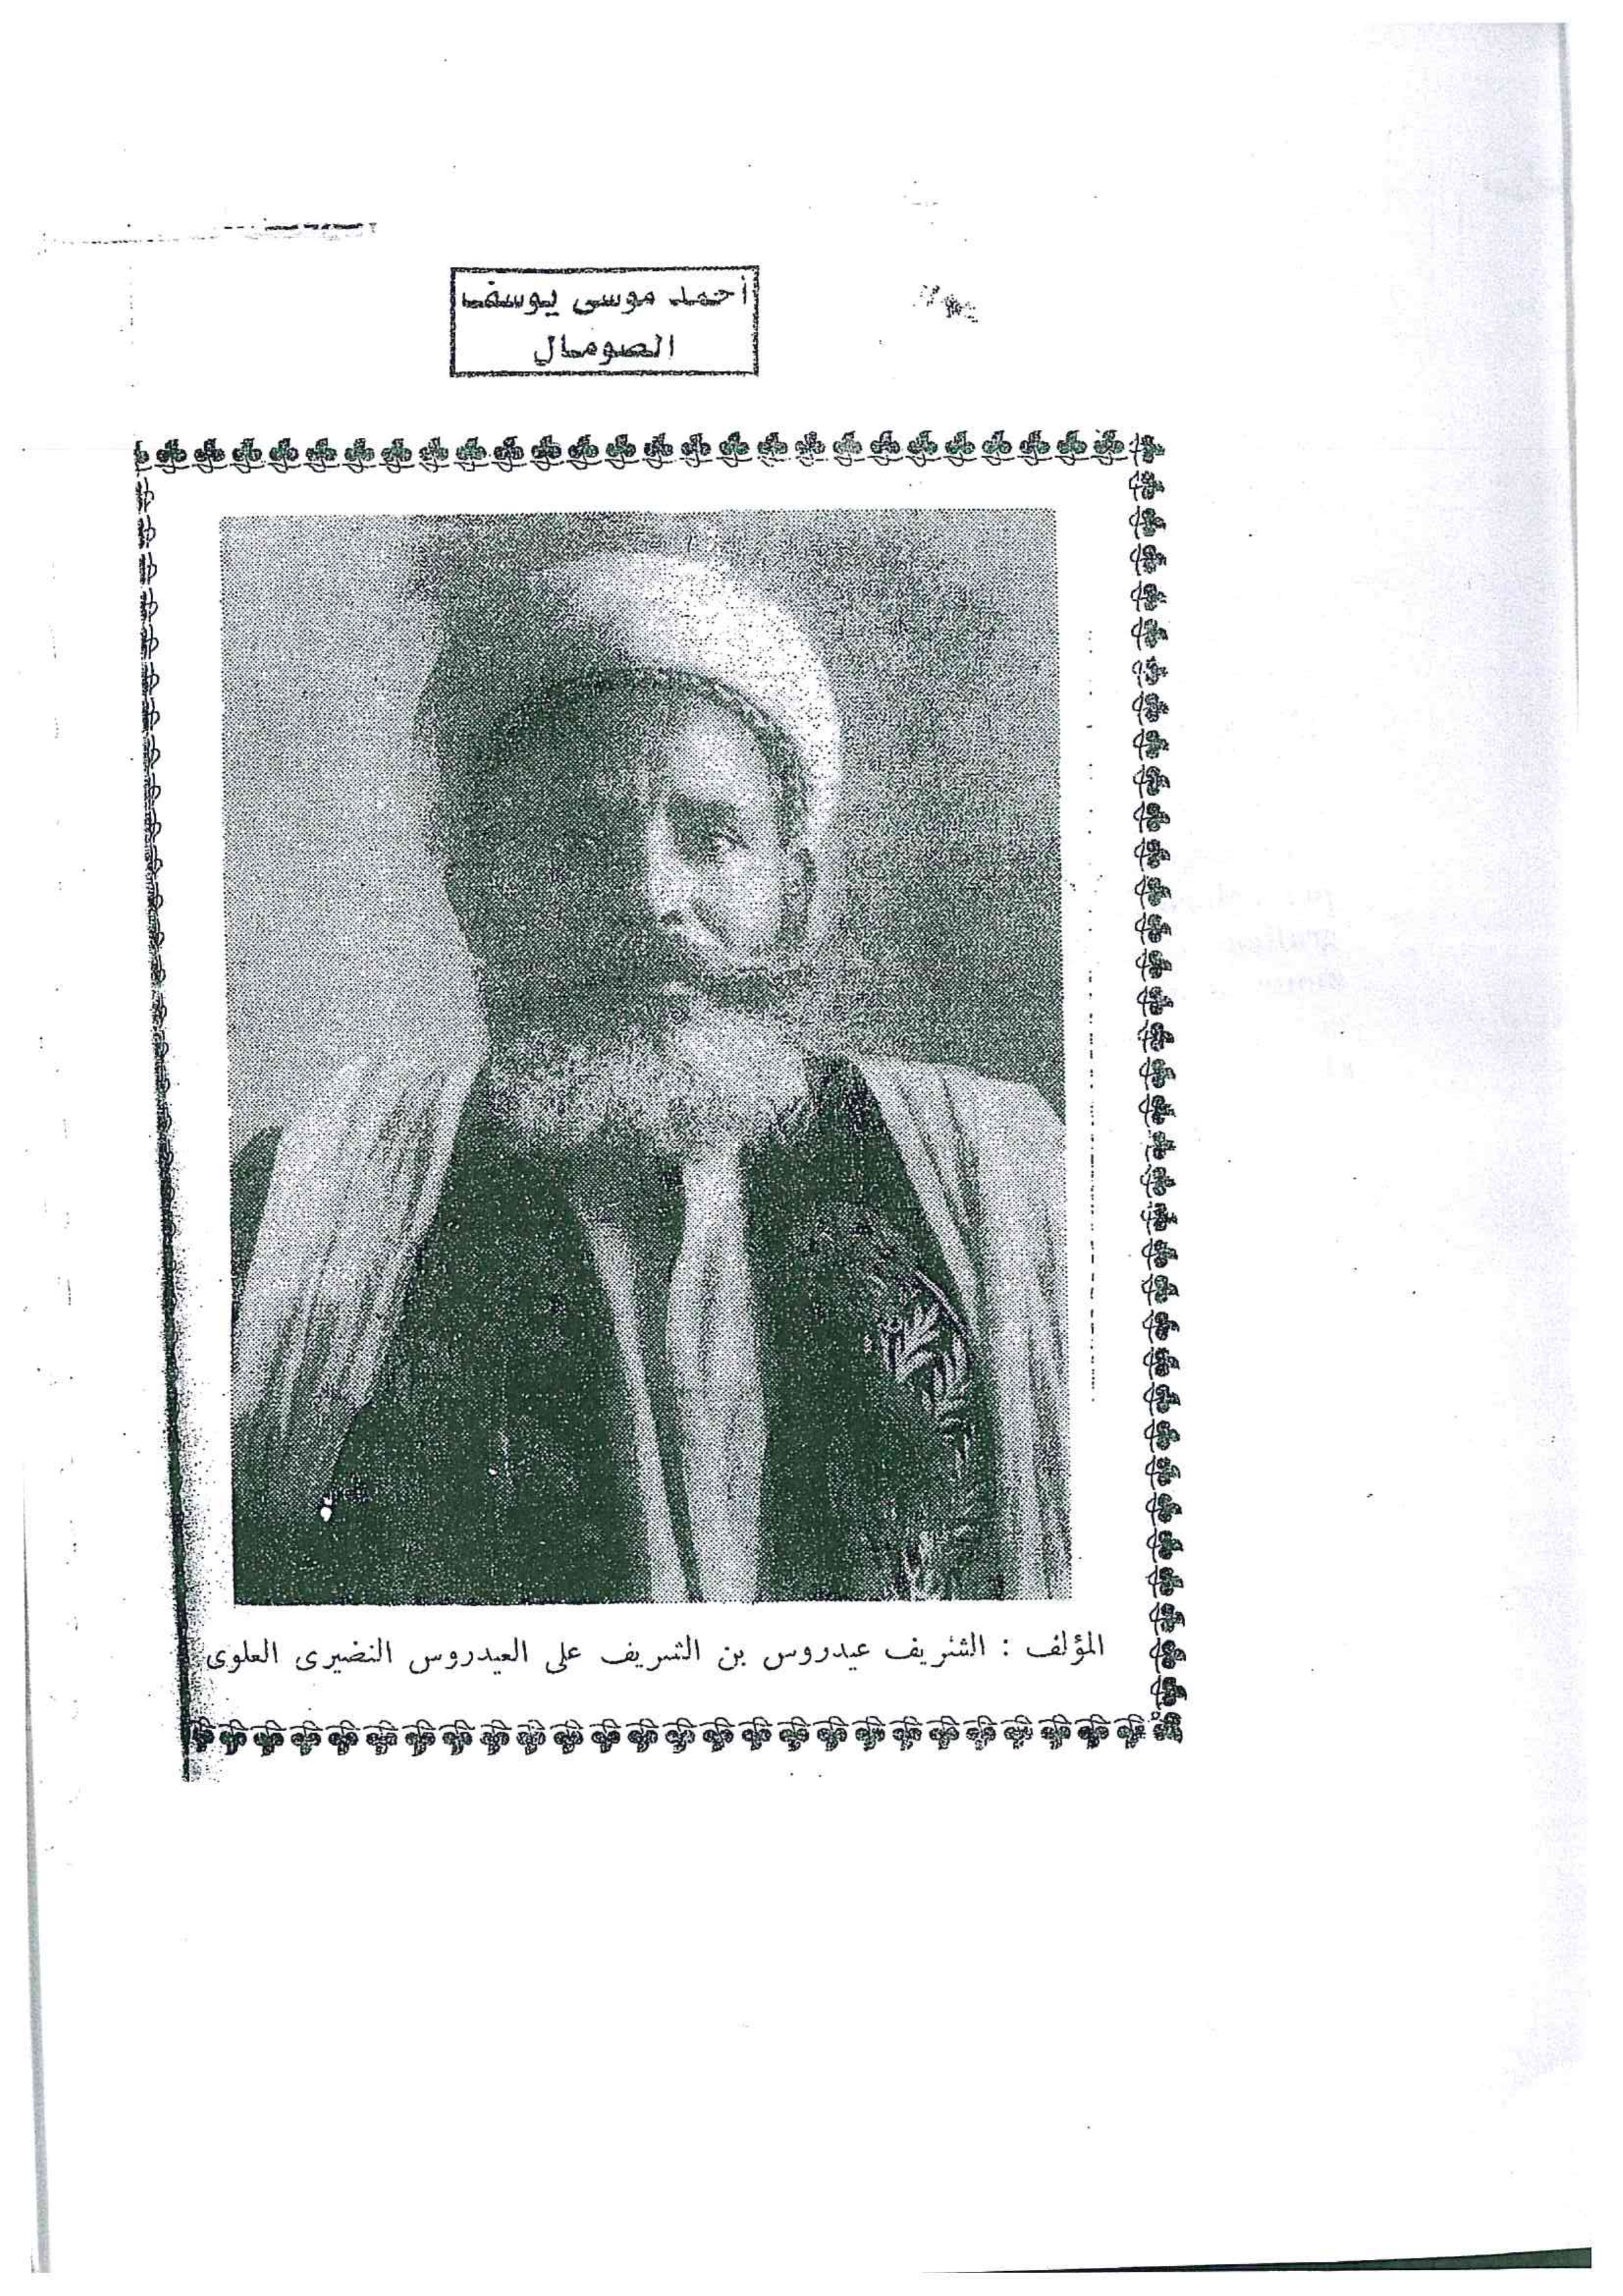 أحمد موسى يوسف
الصومال
المؤلف : الشريف عيدروس بن الشريف على العيدروس النضيرى العلوى